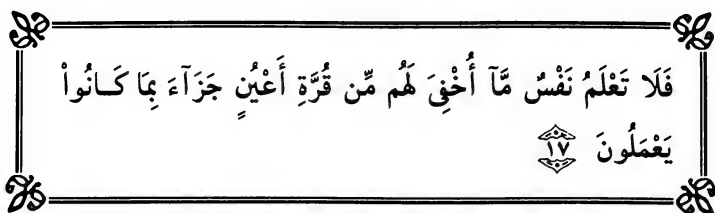 فَلَا تَعْلَمُ نَفْسٌ مَّآ أُخْفِىَ لَهُم مِّن قُرَّةِ أَعْيُنٍ جَزَآءَ بِمَا كَـانُواْ
يَعْمَلُونَ ١٧